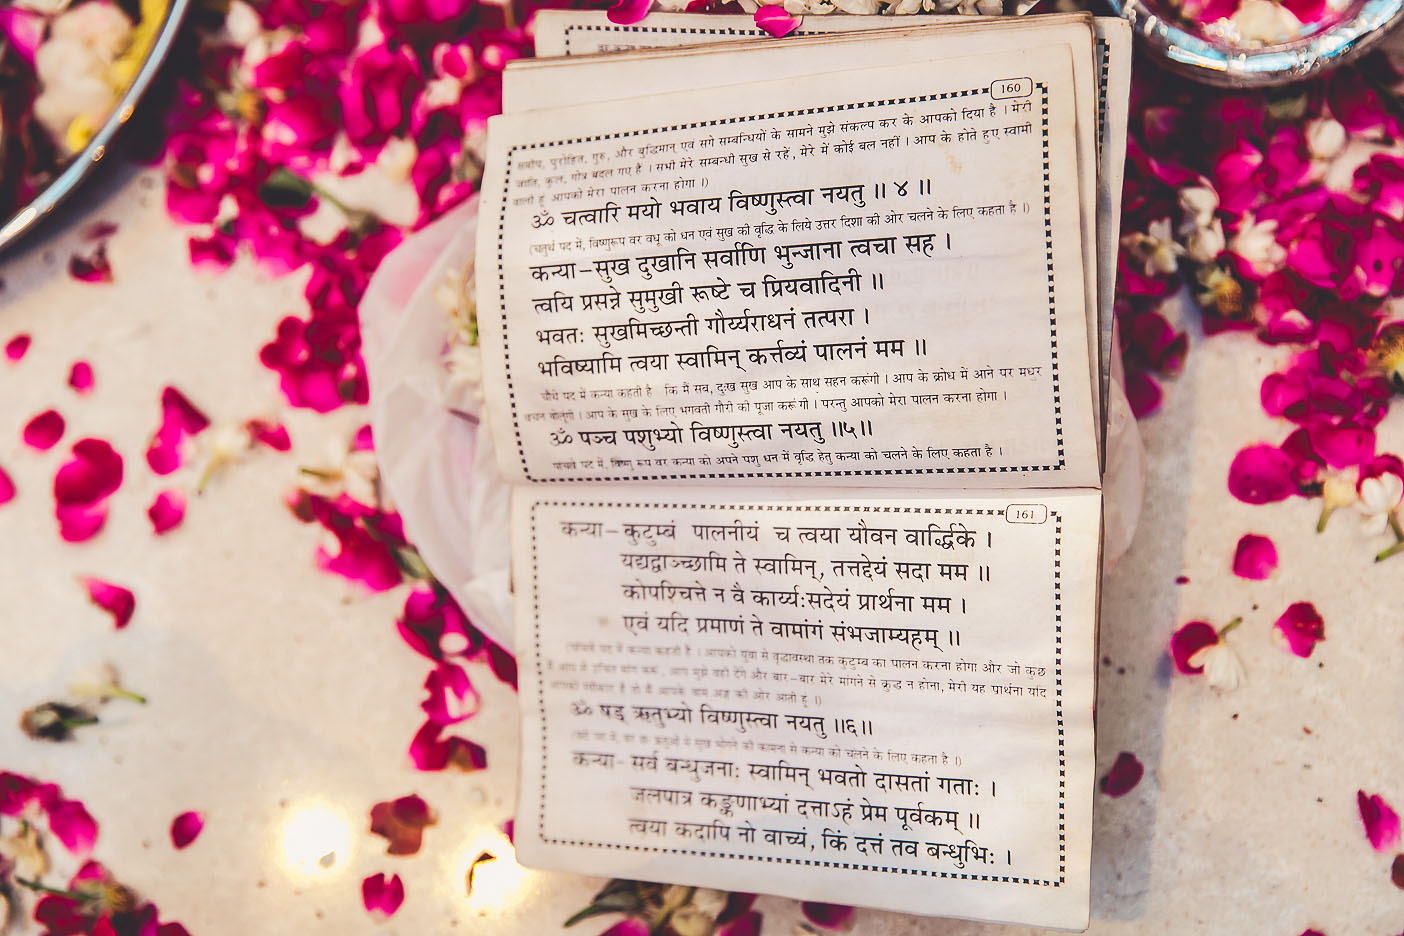 160
समीप, पुरोहित, गुरु, और बुद्धिमान् एवं सगे सम्बन्धियों के सामने मुझे संकल्प कर के आपको दिया है । मेरी
जाति, कुल, गोत्र बदल गए हैं । सभी मेरे सम्बन्धी सुख से रहें, मेरे में कोई बल नहीं । आप के होते हुए स्वामी
वाली हूं आपको मेरा पालन करना होगा ।)
ॐ चत्वारि मयो भवाय विष्णुस्त्वा नयतु ॥ ४ ॥
(चतुर्थ पद में, विष्णुरूप वर वधू को धन एवं सुख की वृद्धि के लिये उत्तर दिशा की ओर चलने के लिए कहता है ।)
कन्या–सुख दुखानि सर्वाणि भुन्जाना त्वचा सह ।
त्वयि प्रसन्ने सुमुखी रूष्टे च प्रियवादिनी ॥
भवतः सुखमिच्छन्ती गौर्य्यराधनं तत्परा ।
भविष्यामि त्वया स्वामिन् कर्त्तव्यं पालनं मम ॥
चौथे पद में कन्या कहती है कि मैं सब, दुःख सुख आप के साथ सहन करूंगी । आप के क्रोध में आने पर मधुर
वचन बोलूंगी । आप के सुख के लिए भगवती गौरी की पूजा करूंगी । परन्तु आपको मेरा पालन करना होगा ।
ॐ पञ्च पशुभ्यो विष्णुस्त्वा नयतु ॥५॥
पांचवे पद में, विष्णु रूप वर कन्या को अपने पशु धन में वृद्धि हेतु कन्या को चलने के लिए कहता है ।
161
कन्या– कुटुम्बं पालनीयं च त्वया यौवन वार्द्धिके ।
यद्यद्वाञ्च्छामि ते स्वामिन्, तत्तद्देयं सदा मम ॥
कोपश्चित्ते न वै कार्य्यःसदेयं प्रार्थना मम ।
एवं यदि प्रमाणं ते वामांगं संभजाम्यहम् ॥
(पांचवे पद में कन्या कहती है । आपको युवा से वृद्धावस्था तक कुटुम्ब का पालन करना होगा और जो कुछ
मैं आप से उचित मांग करूं, आप मुझे वही देंगे और बार–बार मेरे मांगने से क्रुद्ध न होना, मेरी यह प्रार्थना यदि
आपको स्वीकार है तो मैं आपके वाम अङ्ग की ओर आती हूं ।)
ॐ षड् ऋतुभ्यो विष्णुस्त्वा नयतु ॥६॥
पद में, वर छः ऋतुओं में सुख भोगने की कामना से कन्या को चलने के लिए कहता है ।)
कन्या- सर्व बन्धुजनाः स्वामिन् भवतो दासतां गताः ।
जलपात्र कङ्कणाभ्यां दत्ताऽहं प्रेम पूर्वकम् ॥
त्वया कदापि नो वाच्यं, किं दत्तं तव बन्धुभिः ।